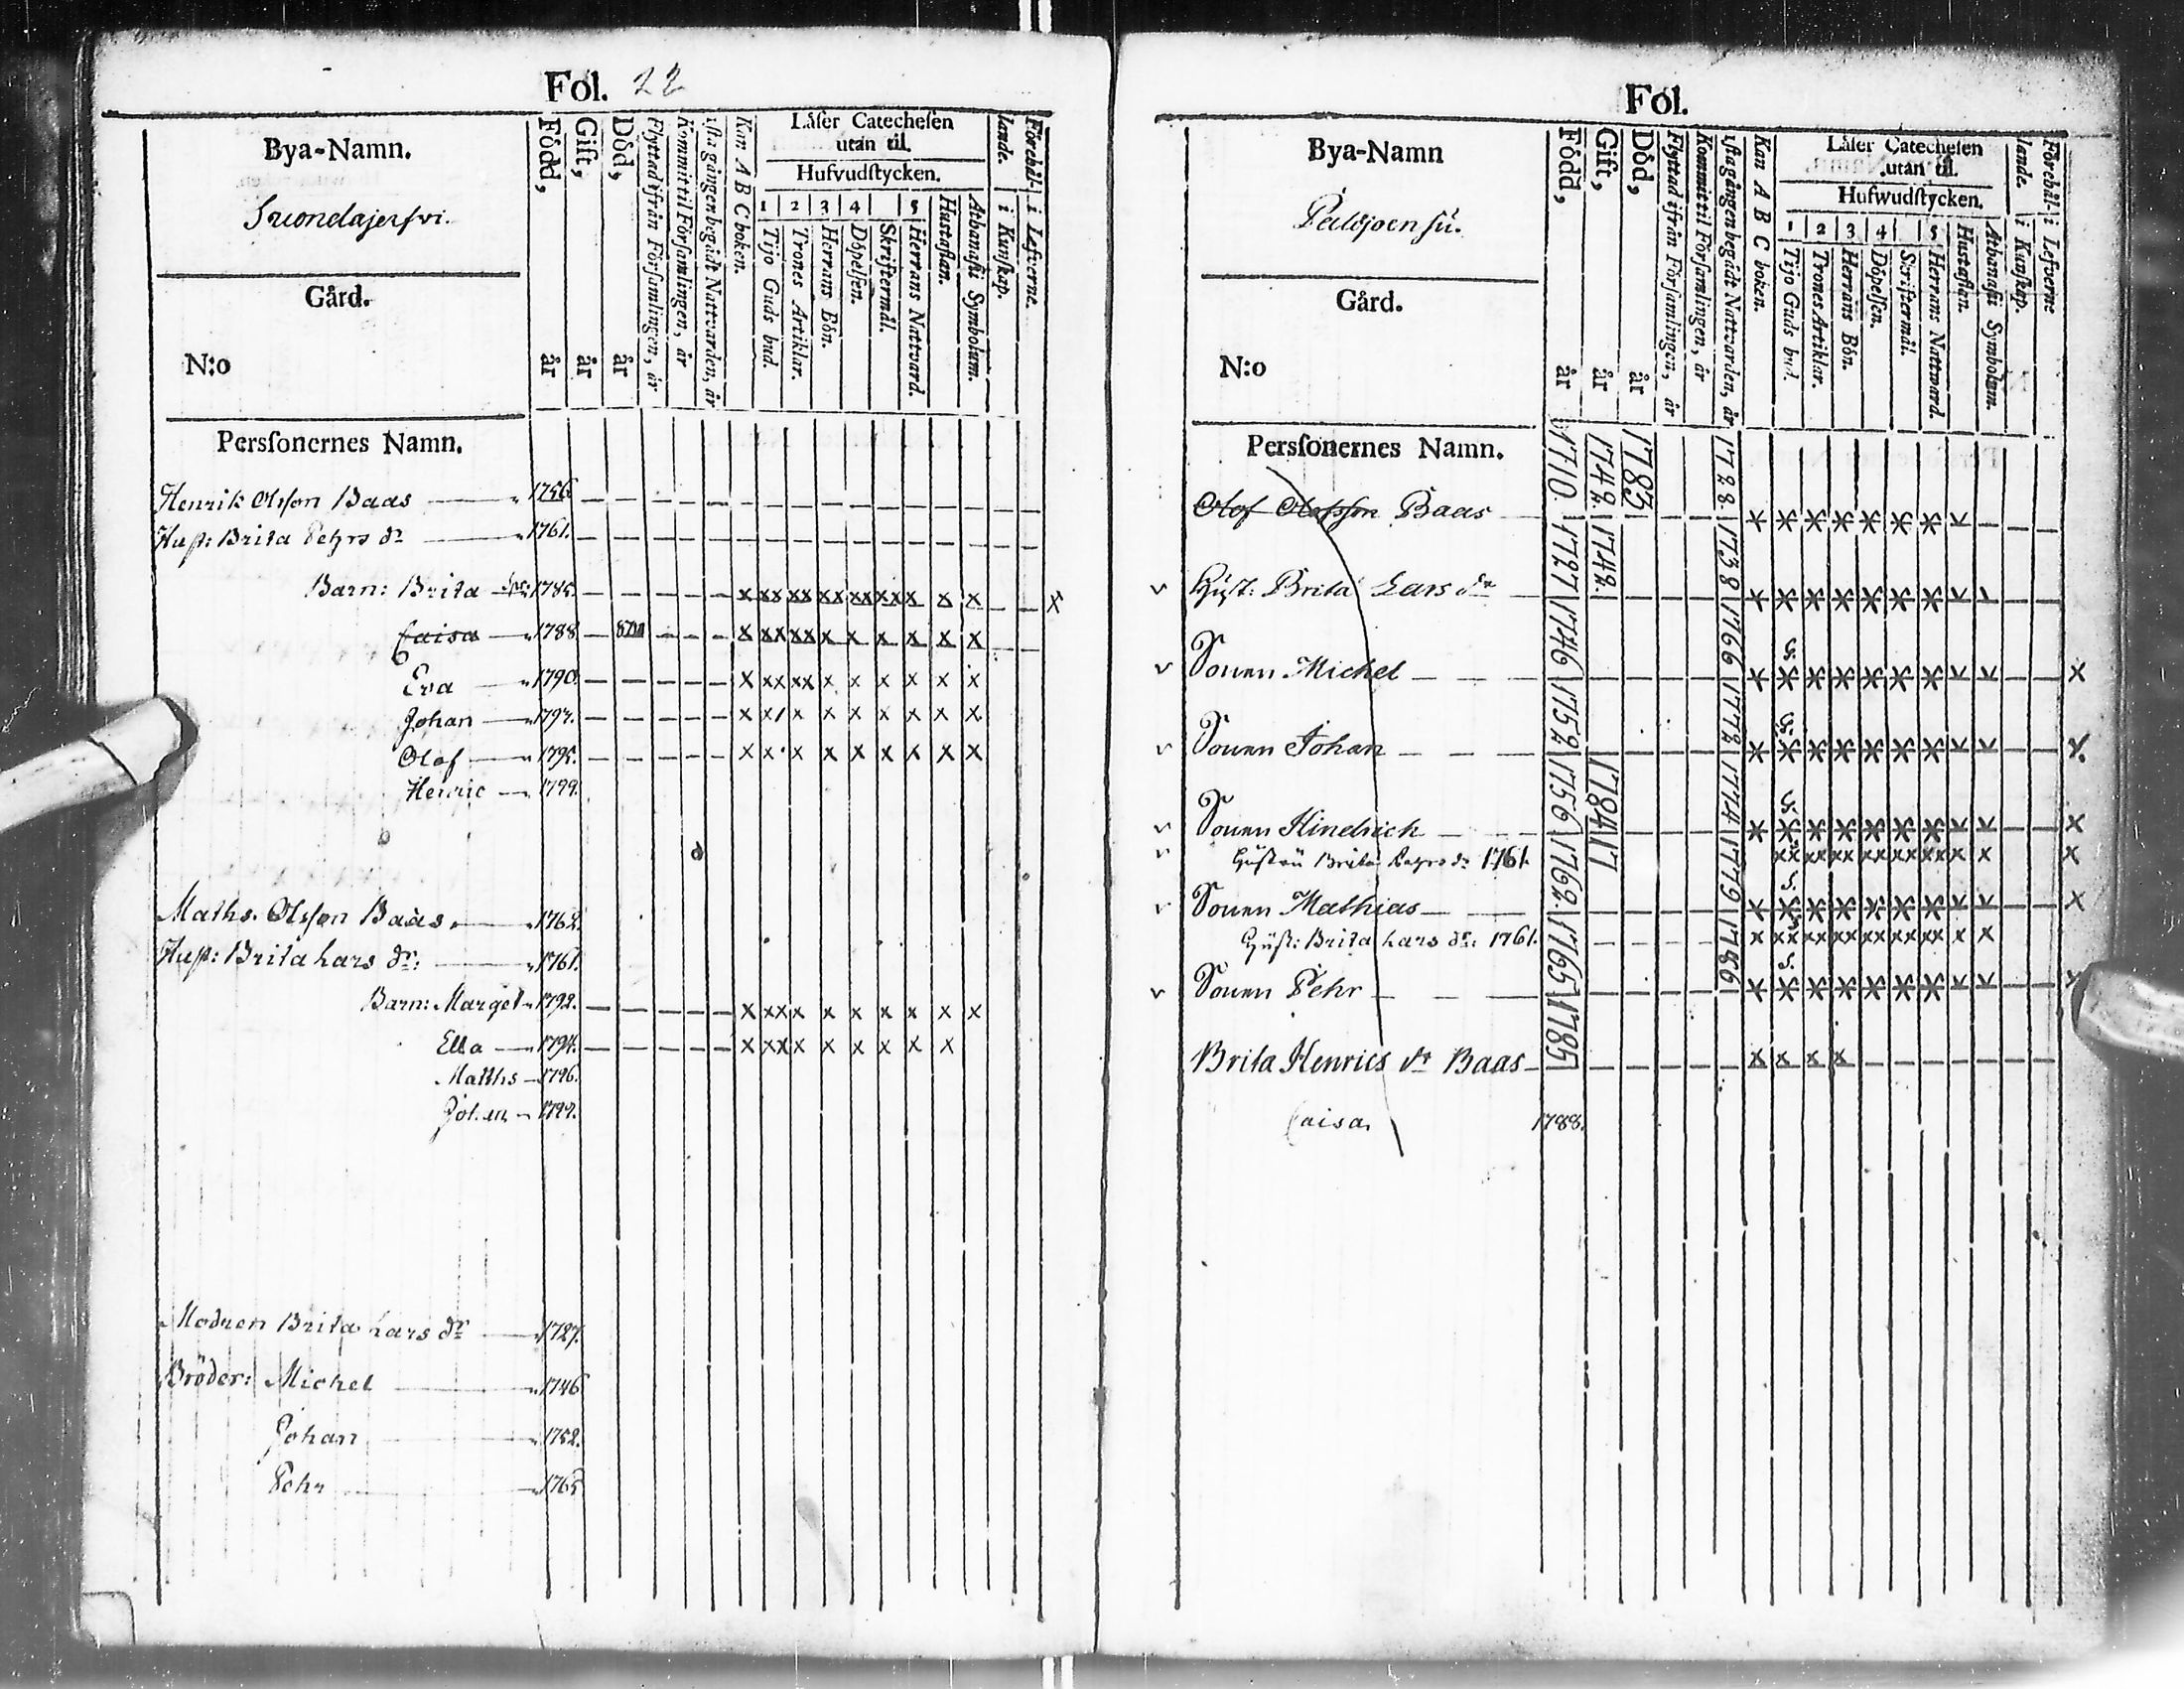 Fol. 22
Bya-Namn.
Suondajerfvi.
Gård.
N:o
Född, år
Gift, år
Död, år
Flyttad ifrån Församlingen, år
Kommit til Församlingen, år
ista gången begådt Nattvarden, år
Kan A B C boken.
Låser Catechesen utan til.
Hufvudstycken.
1 Tijo Guds bud.
2 Trones Artiklar.
3 Herrans Bön.
4 Döpelsen.
Skriftermål.
5 Herrans Nattvard.
Hustaflan.
Athanasii Symbolum.
Förehål- lande.
i Kunskap.
i Lefverne.
Personernes Namn.
Henrik Olsson Baas 1756.
Hust: Brita Pehrs dr 1761.
Barn: Brita 1785.
Caisa 1788.
Eva 1790.
Johan 1792.
Olof 1795.
Henric 1799.
Maths. Olsson Baas. 1762.
Hust: Brita Lars dr: 1761.
Barn: Marget 1792.
Ella 1794.
Matths 1796.
Johan 1797.
Modren Brita Lars dr 1727.
Bröder: Michel 1746
Johan 1752.
Pehr 1765
Fol.
Bya-Namn
Gård.
N:o
Född, år
Gift, år
Död, år
Flyttad ifrån Församlingen, år
Kommit til Församlingen, år
ista gången begådt Nattvarden, år
Kan A B C boken.
Låser Catechesen utan til.
Hufwudstycken.
1 Tijo Guds bud.
2 Trones Artiklar.
3 Herrans Bön.
4 Döpelsen.
Scriftermål.
5 Herrans Natward.
Hustaflan.
Athanasii Symbolum.
Förehål- lande.
i Kunskap.
i Lefverne
Personernes Namn.
Olof Olofsson Baas 1710. 1742. 1783 1728.
Hust: Brita Lars dr 1727 1742. 1738
Sonen Michel 1746 1766
Sonen Johan 1752 1772
Sonen Hindrich 1756 1784 1774
Hustru Brita Pehrs dr 1761.
Sonen Mathias 1762. 1779
Hust: Brita Lars dr: 1761.
Sonen Pehr 1765 1786
Brita Henrics dr Baas 1785
Caisa. 1788.